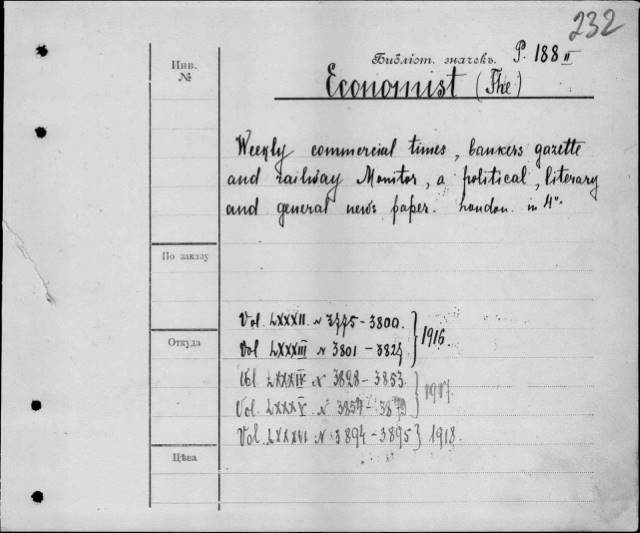 232
Инв.
№
Библіот. значекъ. P. 188 II
Economist (The)
Weekly commercial times, bankers gazette
and railway Monitor, a political, literary
and general news paper. London. in 4°.
По заказу
Vol. LXXXII. N 3775-3800.
Vol LXXXIII N 3801-3827 } 1916.
Откуда
Vol. LXXXIV N 3828-3853.
Vol. LXXXV N 3854-3879 } 1917.
Vol. LXXXVI N 3894-3895 } 1918.
Цѣна